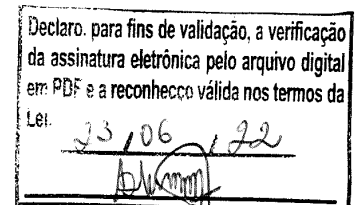 Declaro, para fins de validação, a verificação
da assinatura eletrônica pelo arquivo digital
em PDF e a reconheço válida nos termos da
Lei.
23, 06, 22